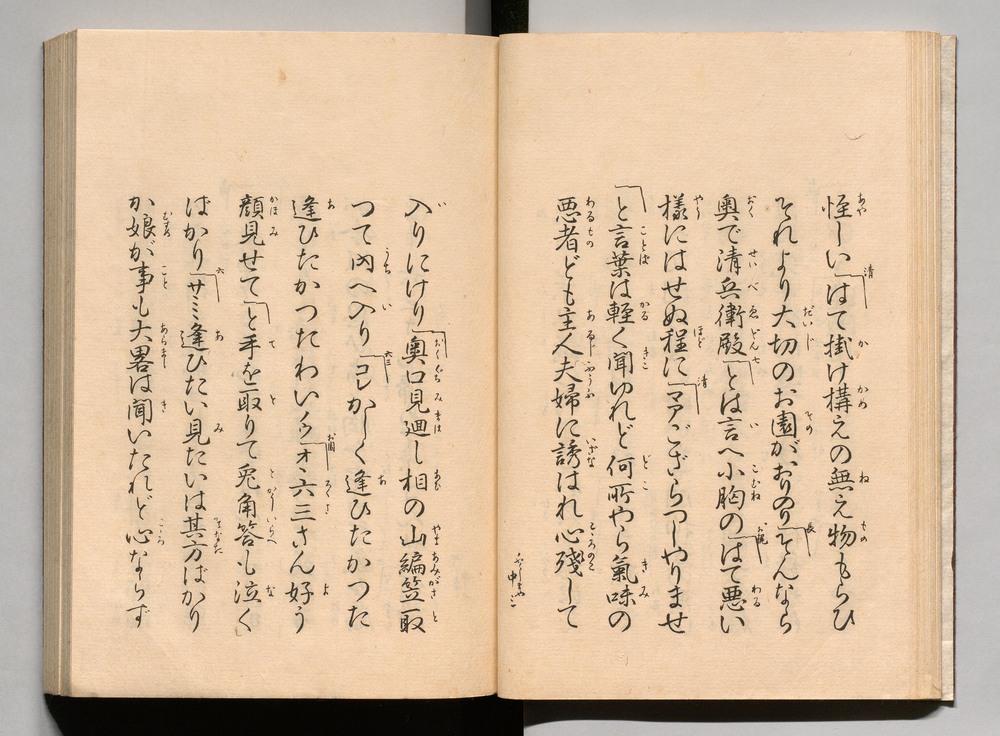 怪しい「はて掛け構えの無え物もらひ
それより大切のお園がおりのり「そんなら
奥で清兵衛殿「とは言へ小胸の「はて悪い
様にはせぬ程に「マアござらつしやりませ
「と言葉は軽く聞ゆれど何所やら氣味の
悪者ども主人夫婦に誘はれ心殘して
入りにけり「奥口見廻し相の山編笠取
つて内へ入り「コレかしく逢ひたかつた
逢ひたかつたわいノウ「オヽ六三さん好う
顔見せて「と手を取りて兎角答も泣く
ばかり「サミ逢ひたい見たいは其方ばかり
か娘が事も大畧は聞いたれど心ならず